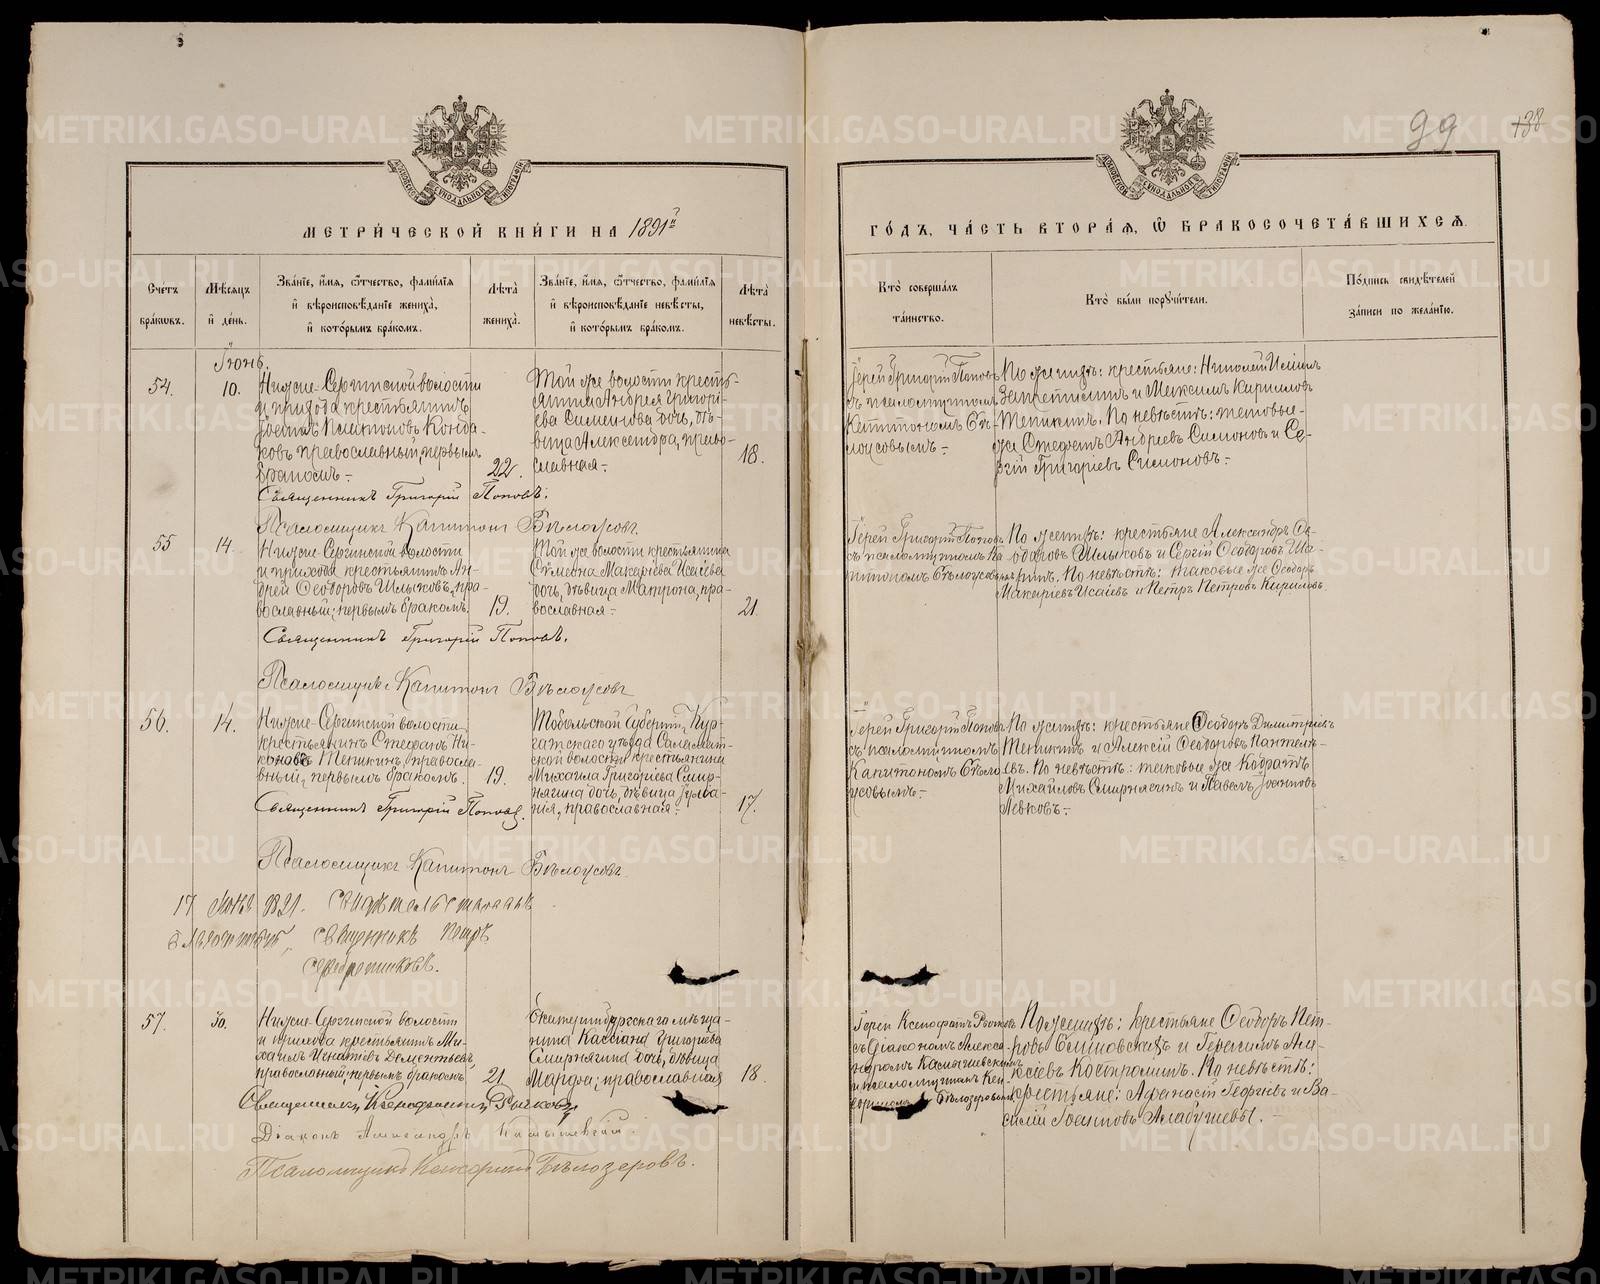 99
138
МЕТРИ́ЧЕСКОЙ КНИ́ГИ НА 1891й
ГО́ДЪ, ЧА́СТЬ ВТОРА́Я, Ѿ БРАКОСОЧЕТА́ВШИХСѦ.
Сче́тъ бра́кѡвъ.
Мѣ́сяцъ и҆ де́нь.
Зва́нїе, и҆́мя, ѻ҆́тчество, фами́лїя и҆ вѣроисповѣ́данїе жениха̀, и҆ кото́рымъ бра́комъ.
Лѣ́та̀ жениха̀.
Зва́нїе, и҆́мя, ѻ҆́тчество, фами́лїя и҆ вѣроисповѣ́данїе невѣ́сты, и҆ кото́рымъ бра́комъ.
Лѣ́та̀ невѣ́сты.
Кто̀ соверша́лъ та́инство.
Кто̀ бы́ли порꙋчи́тели.
По́дпись свидѣ́телей за́писи по жела́нїю.
Іюнь
54.
10.
Нижне-Сергинской волости
и прихода крестьянинъ
Іоаннъ Платоновъ Конда-
ковъ православный, первымъ
бракомъ.-
22.
Той же волости кресть-
янина Андрея Григорі-
ева Симонова дочь, дѣ-
вица Александра, право-
славная.-
18.
Іерей Григорій Поповъ
съ псаломщикомъ
Капитономъ Бѣ-
лоусовымъ.-
По женихѣ: крестьяне: Николай
и Максимъ Кирилловъ
Тепикинъ. По невѣстѣ: таковые-
же Стефанъ Андреевъ Симоновъ и Се-
ргій Григоріевъ Симоновъ.-
Священникъ Григорій Поповъ.
Псаломщикъ Капитонъ Бѣлоусовъ
55
14.
Нижне-Сергинской волости
и прихода крестьянинъ Ан-
дрей Ѳеодоровъ Шлыковъ, пра-
вославный, первымъ бракомъ.
19.
Той же волости крестьянина
Сѵмеона Макаріева Исаева
дочь, дѣвица Матрона, пра-
вославная.-
21.
Іерей Григорій Поповъ
съ псаломщикомъ Ка-
питономъ Бѣлоусовымъ
По женихѣ: крестьяне Александръ Ѳе-
одоровъ Шлыковъ и Сергій Ѳеодоровъ
По невѣстѣ: таковые же Ѳеодоръ
Макаріевъ Исаевъ и Петръ Петровъ Кирилловъ.
Священникъ Григорій Поповъ.
Псаломщикъ Капитонъ Бѣлоусовъ
56.
14.
Нижне-Сергинской волости
крестьянинъ Стефанъ Ни-
коновъ Тепикинъ, правосла-
вный, первымъ бракомъ.
19.
Тобольской Губерніи, Кур-
ганскаго уѣзда
волости крестьянина
Михаила Григоріева Смир-
нягина дочь, дѣвица Іуліа-
нія, православная.-
17.
Іерей Григорій Поповъ
съ псаломщикомъ
Капитономъ Бѣло-
усовымъ.-
По женихѣ: крестьяне Ѳеодоръ Димитріевъ
Тепикинъ и Алексій Ѳеодоровъ Пантелѣ-
евъ. По невѣстѣ: таковые же Кодратъ
Михайловъ Смирнягинъ и Павелъ Іоанновъ
Левковъ.-
Священникъ Григорій Поповъ.
Псаломщикъ Капитонъ Бѣлоусовъ
17 1891. свидѣтельствовалъ
священникъ Петръ
Серебренниковъ.
57.
30.
Нижне-Сергинской волости
и прихода крестьянинъ Ми-
хаилъ Игнатіевъ Дементьевъ,
православный, первымъ бракомъ
21.
Екатеринбургскаго мѣща-
нина Кассіана Григорьева
Смирнягина дочь, дѣвица
Марѳа, православная
18.
Іерей Ксенофонтъ Рычковъ
съ діакономъ Алекса-
ндромъ Камышевскимъ
и псаломщикомъ Кен-
сориномъ Бѣлозеровымъ
По женихѣ: крестьяне Ѳеодоръ Пет-
ровъ и Герасимъ Але-
ксіевъ Костроминъ. По невѣстѣ:
крестьяне: Аѳанасій Георгіевъ и Ва-
силій Іоанновъ Алабушевы.-
Священникъ Ксенофонтъ Рычковъ
Діаконъ Александръ Камышевскій.
Псаломщикъ Кенсоринъ Бѣлозеровъ.
METRIKI.GASO-URAL.RU